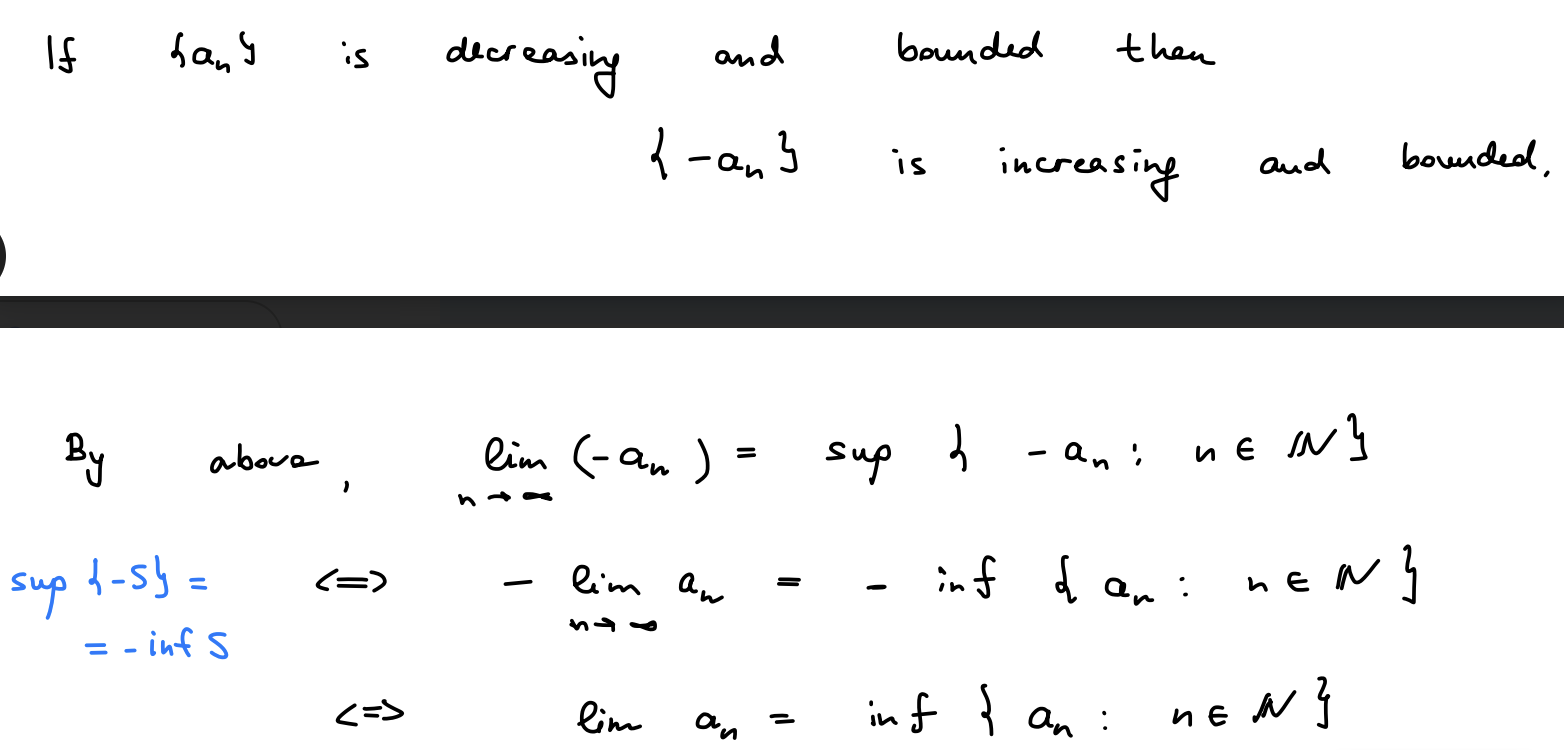 If {aₙ} is decreasing and bounded then
{-aₙ} is increasing and bounded.
By above, lim (-aₙ) = sup { -aₙ : n ∈ ℕ}
n→∞
sup {-S} = <=> - lim aₙ = - inf { aₙ : n ∈ ℕ }
n→∞
= - inf S
<=> lim aₙ = inf { aₙ : n ∈ ℕ }